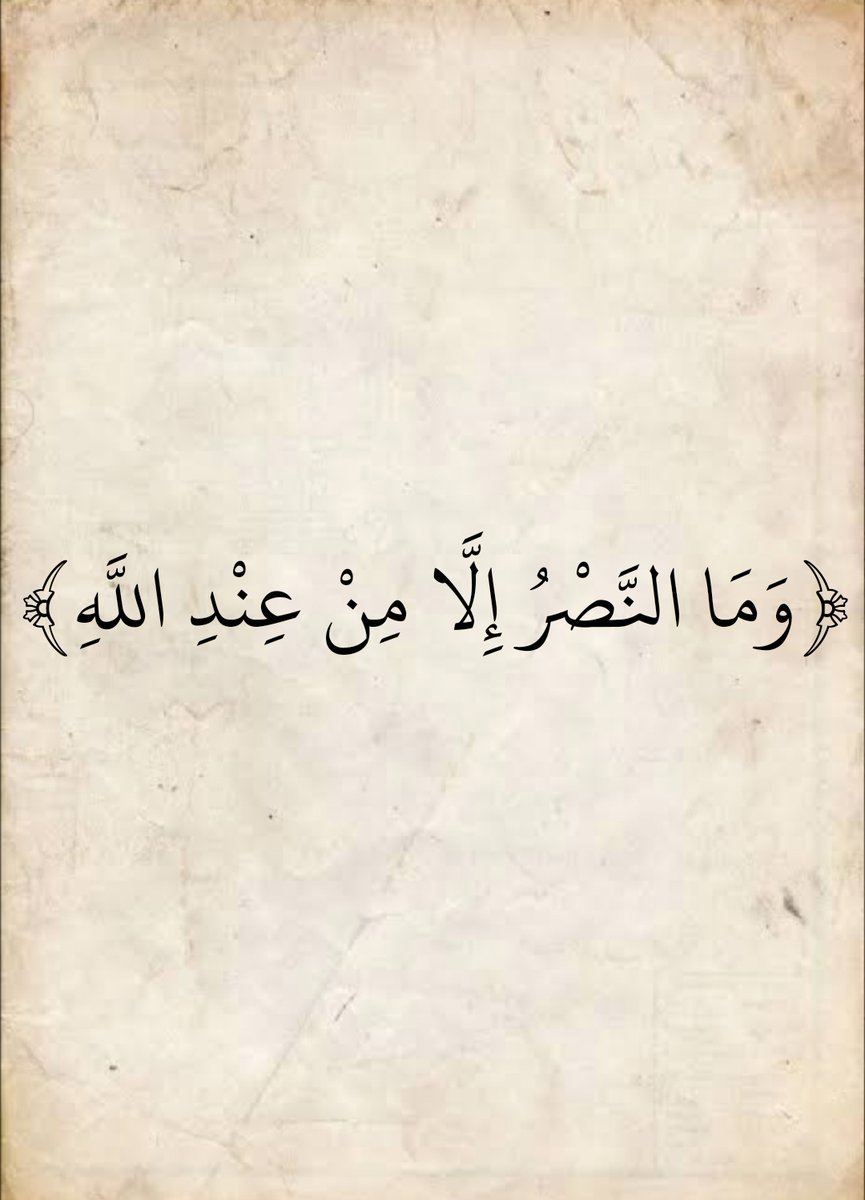 ﴿وَمَا النَّصْرُ إِلَّا مِنْ عِنْدِ اللَّهِ﴾